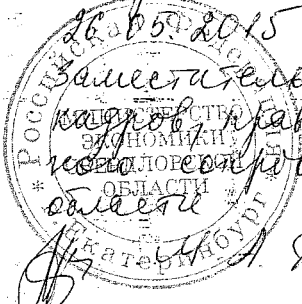 26.05.2015
Заместитель
кадров, прав
ного сопро
области
Российская Федерация
МИНИСТЕРСТВО
ЭКОНОМИКИ
СВЕРДЛОВСКОЙ
ОБЛАСТИ
* Екатеринбург *